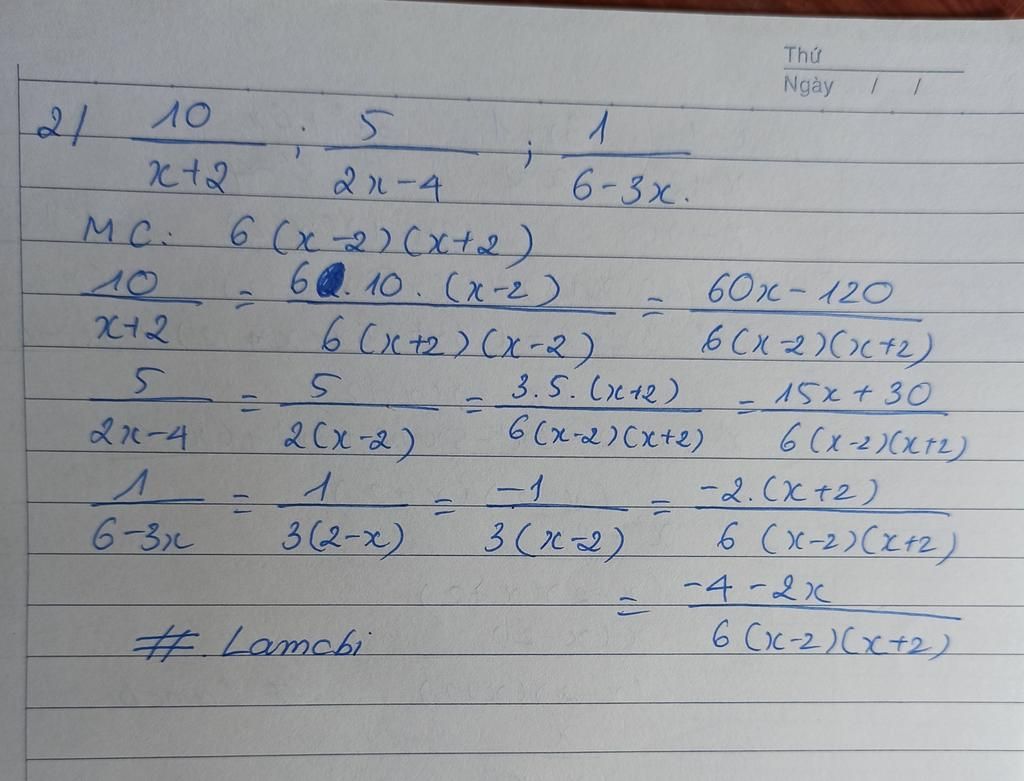 Thứ
Ngày / /
2/ 10/(x+2) ; 5/(2x-4) ; 1/(6-3x).
MC: 6(x-2)(x+2)
10/(x+2) = 6.10.(x-2)/6(x+2)(x-2) = (60x-120)/6(x-2)(x+2)
5/(2x-4) = 5/2(x-2) = 3.5.(x+2)/6(x-2)(x+2) = (15x+30)/6(x-2)(x+2)
1/(6-3x) = 1/3(2-x) = -1/3(x-2) = -2.(x+2)/6(x-2)(x+2)
= (-4-2x)/6(x-2)(x+2)
# Lamabi